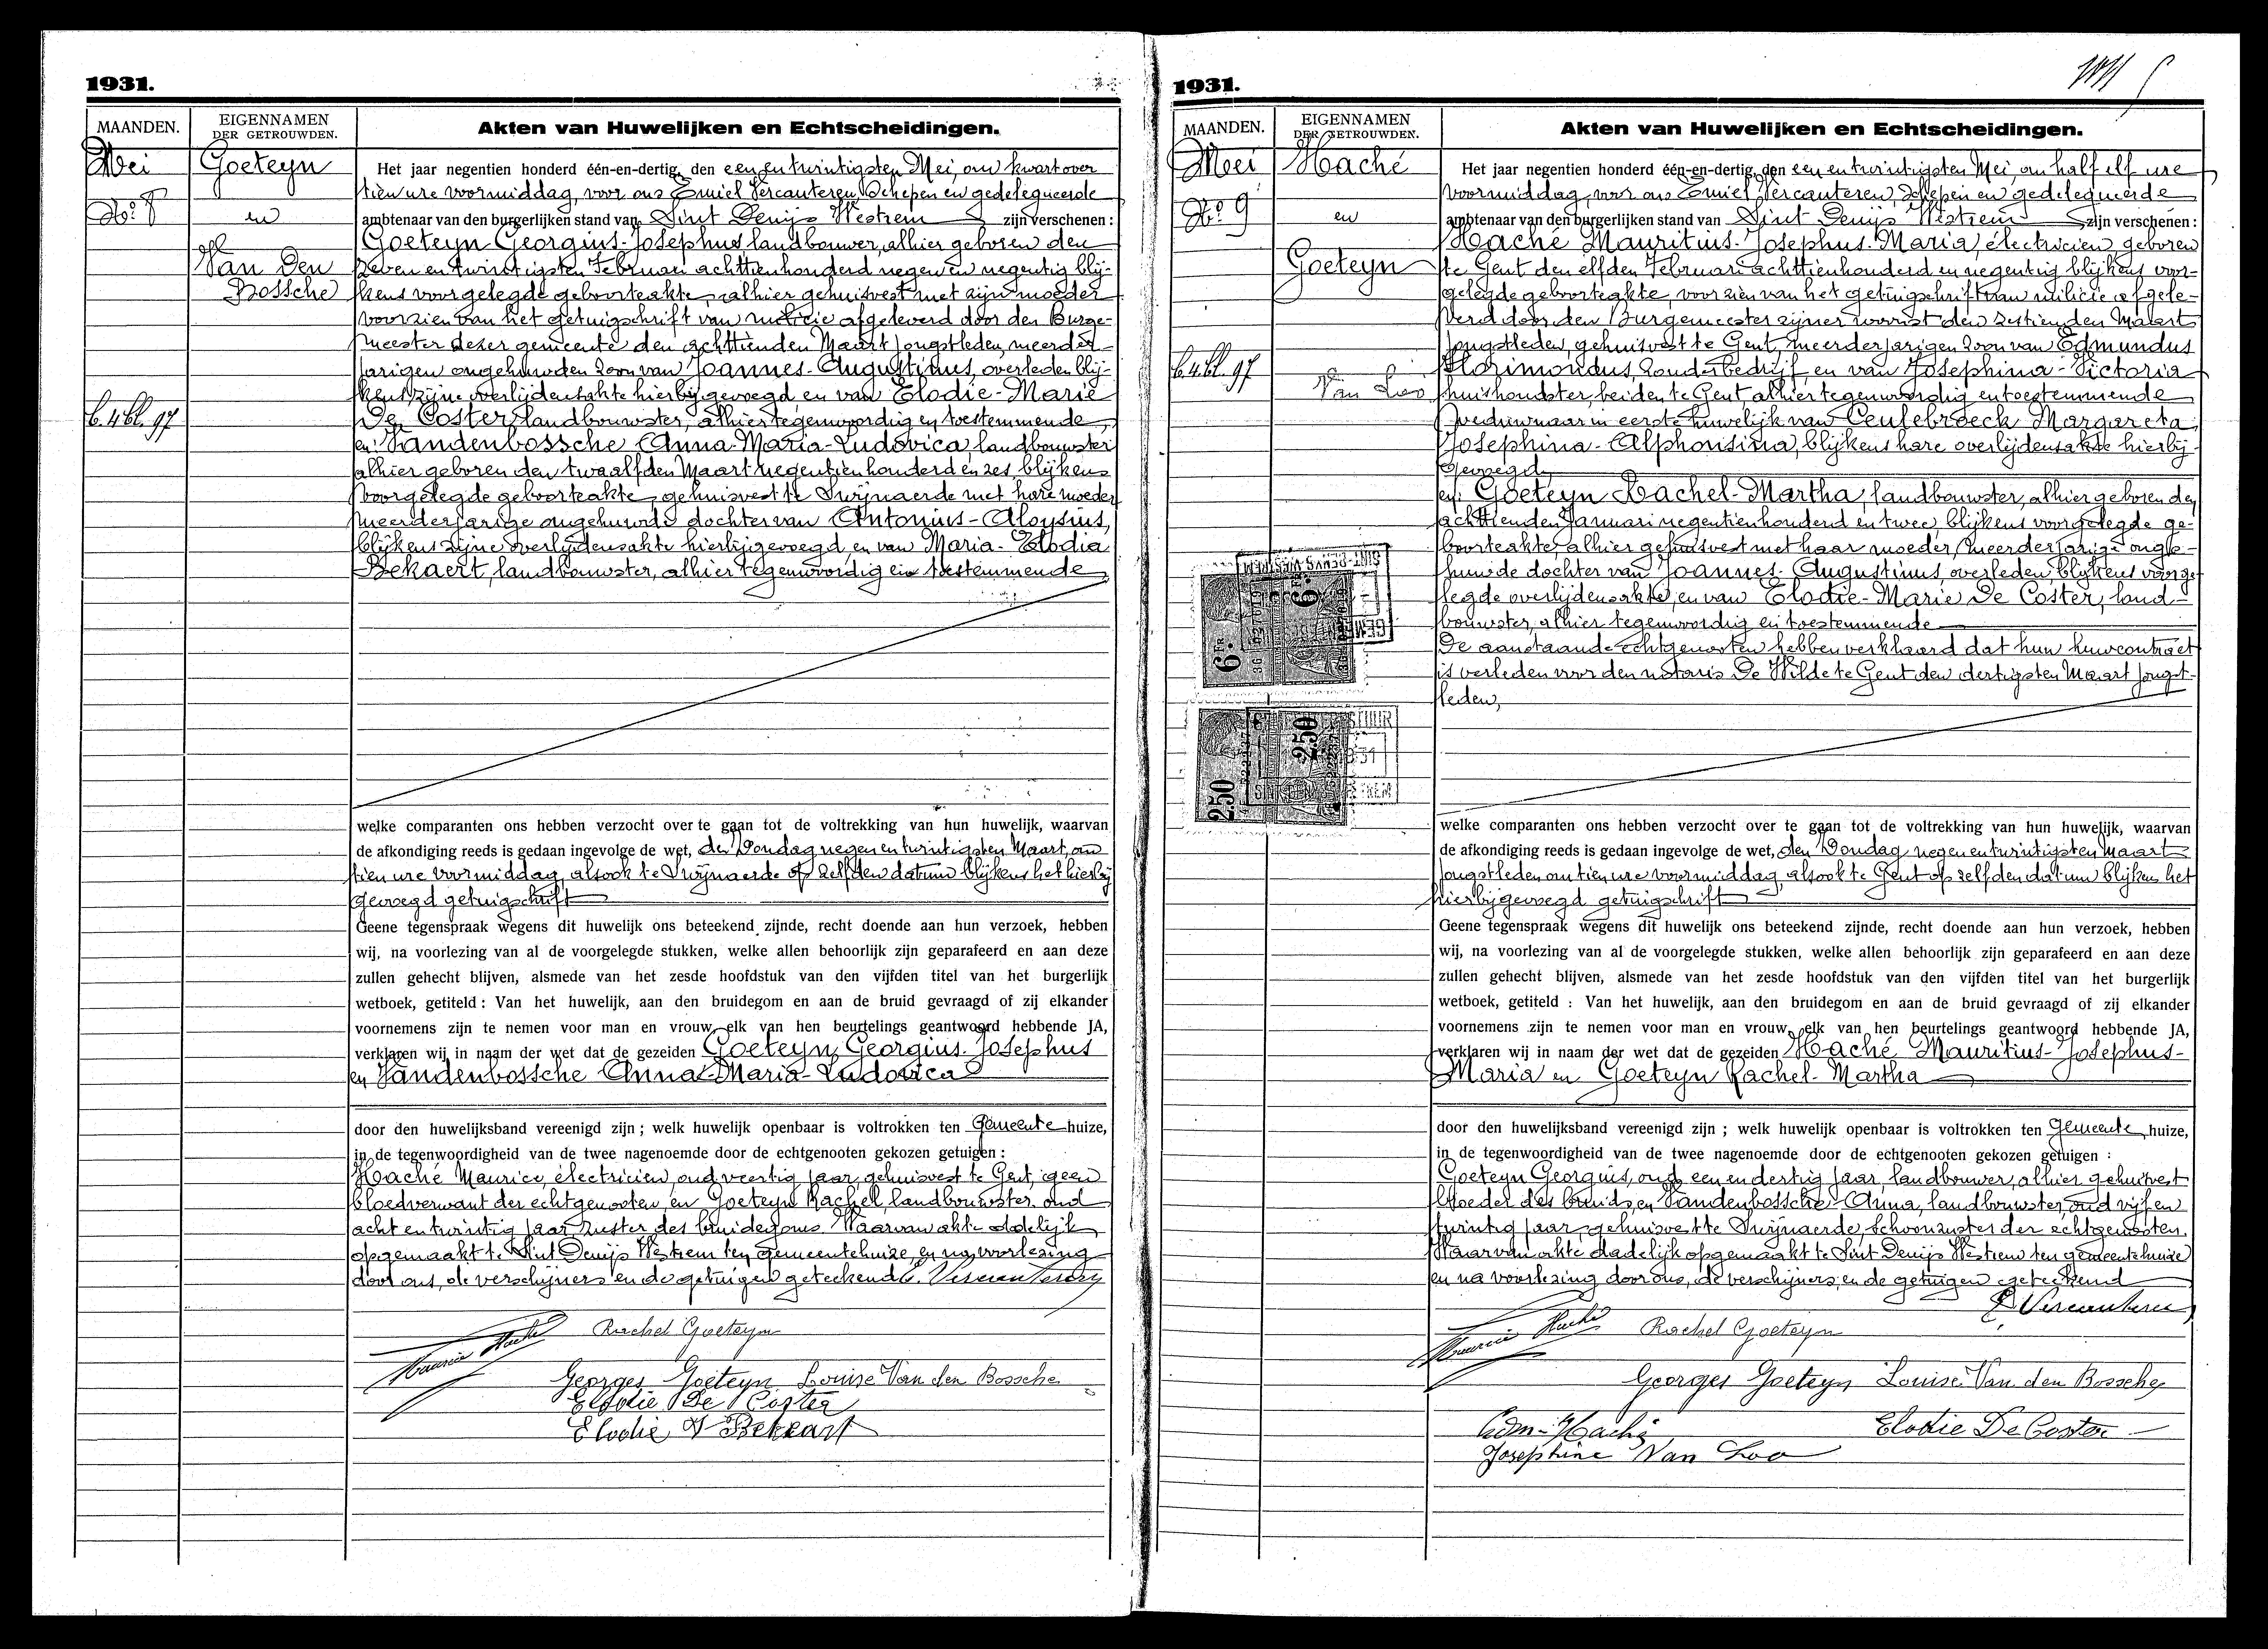 1931.
MAANDEN.
EIGENNAMEN
DER GETROUWDEN.
Akten van Huwelijken en Echtscheidingen.
Mei
No 8
Goeteyn
en
Van Den
Bossche
b. 4 bl. 97
Het jaar negentien honderd één-en-dertig, den een en twintigsten Mei, om kwart over
tien ure voormiddag, voor ons Emiel Vercauteren, Schepen en gedelegueerde
ambtenaar van den burgerlijken stand van Sint Denijs Westrem zijn verschenen :
Goeteyn Georgius-Josephus landbouwer, alhier geboren den
zeven en twintigsten Februari achttienhonderd negen en negentig blij-
kens voorgelegde geboorteakte, alhier gehuisvest met zijn moeder
voorzien van het getuigschrift van milicie afgeleverd door den Burge-
meester dezer gemeente den achttienden Maart jongstleden, meerder-
jarigen ongehuwden zoon van Joannes-Augustinus, overleden blij-
kens zijne overlijdensakte hierbij gevoegd en van Elodie-Marie
De Coster, landbouwster, alhier tegenwoordig en toestemmende,
en: Vandenbossche Anna-Maria-Ludovica, landbouwster
alhier geboren den twaalfden Maart negentien honderd en zes blijkens
voorgelegde geboorteakte, gehuisvest te Swijnaerde met hare moeder
meerderjarige ongehuwde dochter van Antonius-Aloysius,
blijkens zijne overlijdensakte hierbijgevoegd en van Maria-Elodia
Bekaert, landbouwster, alhier tegenwoordig en toestemmende
welke comparanten ons hebben verzocht over te gaan tot de voltrekking van hun huwelijk, waarvan
de afkondiging reeds is gedaan ingevolge de wet, den Zondag negen en twintigsten Maart, om
tien ure voormiddag, alsook te Swijnaerde op zelfden datum blijkens het hierbij
gevoegd getuigschrift
Geene tegenspraak wegens dit huwelijk ons beteekend zijnde, recht doende aan hun verzoek, hebben
wij, na voorlezing van al de voorgelegde stukken, welke allen behoorlijk zijn geparafeerd en aan deze
zullen gehecht blijven, alsmede van het zesde hoofdstuk van den vijfden titel van het burgerlijk
wetboek, getiteld : Van het huwelijk, aan den bruidegom en aan de bruid gevraagd of zij elkander
voornemens zijn te nemen voor man en vrouw, elk van hen beurtelings geantwoord hebbende JA,
verklaren wij in naam der wet dat de gezeiden Goeteyn Georgius-Josephus
en Vandenbossche Anna-Maria-Ludovica
door den huwelijksband vereenigd zijn ; welk huwelijk openbaar is voltrokken ten Gemeente huize,
in de tegenwoordigheid van de twee nagenoemde door de echtgenooten gekozen getuigen :
Haché Maurice, électricien, oud veertig jaar, gehuisvest te Gent, geen
bloedverwant der echtgenooten, en Goeteyn Rachel, landbouwster, oud
acht en twintig jaar, zuster des bruidegoms. Waarvan akte dadelijk
opgemaakt te Sint Denijs Westrem ten gemeentehuize, en na voorlezing
door ons, de verschijners en de getuigen geteekend. E. Vercauteren
Maurice Haché Rachel Goeteyn
Georges Goeteyn Louise Van den Bossche
Elodie De Coster
Elodie Bekaart
1931.
MAANDEN.
EIGENNAMEN
DER GETROUWDEN.
Akten van Huwelijken en Echtscheidingen.
Mei
No 9
Haché
en
Goeteyn
b. 4 bl. 97
Van Loo
6 FR
6 FR
2.50
2.50
Het jaar negentien honderd één-en-dertig, den een en twintigsten Mei, om half elf ure
voormiddag, voor ons Emiel Vercauteren, Schepen en gedelegueerde
ambtenaar van den burgerlijken stand van Sint Denijs Westrem zijn verschenen :
Haché Mauritius-Josephus-Maria, électricien, geboren
te Gent den elfden Februari achttienhonderd en negentig blijkens voor-
gelegde geboorteakte, voorzien van het getuigschrift van milicie afgele-
verd door den Burgemeester zijner woonst den zestienden Maart
jongstleden, gehuisvest te Gent, meerderjarigen zoon van Edmundus
Florimondus, zonder bedrijf, en van Josephina-Victoria
huishoudster, beiden te Gent, alhier tegenwoordig en toestemmende
weduwnaar in eerste huwelijk van Ceulebroeck Margareta
Josephina-Alphonsina, blijkens hare overlijdensakte hierbij-
gevoegd,
en: Goeteyn Rachel-Martha, landbouwster, alhier geboren den
achttienden Januari negentienhonderd en twee, blijkens voorgelegde ge-
boorteakte, alhier gehuisvest met haar moeder, meerderjarige onge-
huwde dochter van Joannes-Augustinus, overleden, blijkens voorge-
legde overlijdensakte, en van Elodie-Marie De Coster, land-
bouwster, alhier tegenwoordig en toestemmende
De aanstaande echtgenooten hebben verklaard dat hun huwcontract
is verleden voor den notaris De Wilde te Gent den dertigsten Maart jongst-
leden,
welke comparanten ons hebben verzocht over te gaan tot de voltrekking van hun huwelijk, waarvan
de afkondiging reeds is gedaan ingevolge de wet, den Zondag negen en twintigsten Maart
jongstleden om tien ure voormiddag, alsook te Gent op zelfden datum blijkens het
hierbijgevoegd getuigschrift
Geene tegenspraak wegens dit huwelijk ons beteekend zijnde, recht doende aan hun verzoek, hebben
wij, na voorlezing van al de voorgelegde stukken, welke allen behoorlijk zijn geparafeerd en aan deze
zullen gehecht blijven, alsmede van het zesde hoofdstuk van den vijfden titel van het burgerlijk
wetboek, getiteld : Van het huwelijk, aan den bruidegom en aan de bruid gevraagd of zij elkander
voornemens zijn te nemen voor man en vrouw, elk van hen beurtelings geantwoord hebbende JA,
verklaren wij in naam der wet dat de gezeiden Haché Mauritius-Josephus-
Maria en Goeteyn Rachel-Martha
door den huwelijksband vereenigd zijn ; welk huwelijk openbaar is voltrokken ten Gemeente huize,
in de tegenwoordigheid van de twee nagenoemde door de echtgenooten gekozen getuigen :
Goeteyn Georgius, oud een en dertig jaar, landbouwer, alhier gehuisvest
broeder des bruids, en Vandenbossche Anna, landbouwster, oud vijf en
twintig jaar, gehuisvest te Swijnaerde, schoonzuster der echtgenooten.
Waarvan akte dadelijk opgemaakt te Sint Denijs Westrem ten gemeentehuize
en na voorlezing door ons, de verschijners en de getuigen geteekend
E. Vercauteren
Maurice Haché Rachel Goeteyn
Georges Goeteyn Louise Van den Bossche
Edm. Haché Elodie De Coster
Josephine Van Loo